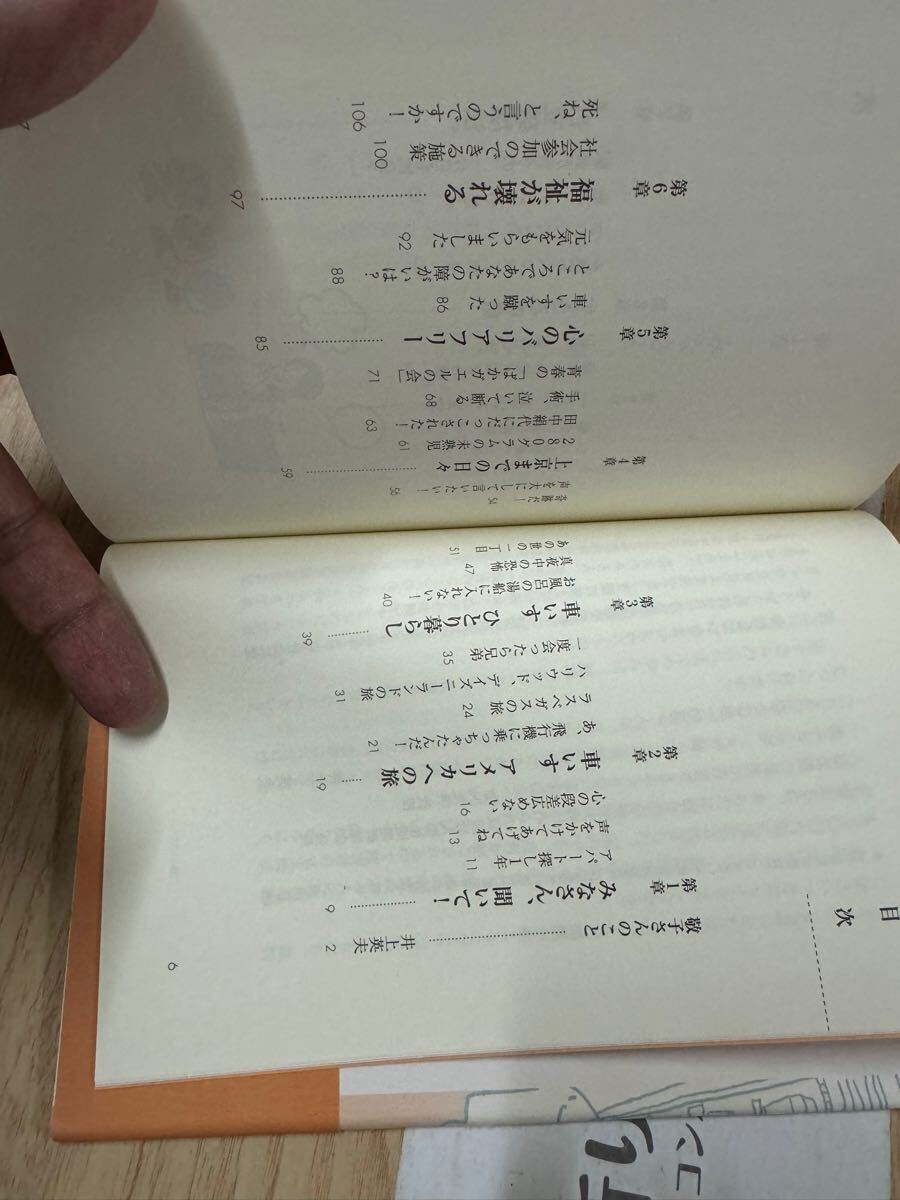 目次
敬子さんのこと……………井上英夫 2
第1章 みなさん、聞いて!……9
アパート探し1年 11
声をかけてあげてね 13
心の段差広めない 16
第2章 車いす アメリカへの旅……19
あ、飛行機に乗っちゃたんだ! 21
ラスベガスの旅 24
ハリウッド、デイズニーランドの旅 31
一度会ったら兄弟 35
第3章 車いす ひとり暮らし……39
お風呂の湯船に入れない! 40
真夜中の恐怖 47
あの世の一丁目 51
6
奇跡だ! 54
声を大にして言いたい! 56
第4章 上京までの日々……59
280グラムの未熟児 61
田中絹代にだっこされた! 63
手術、泣いて断る 68
青春の「ばかガエルの会」 71
第5章 心のバリアフリー……85
車いすを蹴った 86
ところであなたの障がいは? 88
元気をもらいました 92
第6章 福祉が壊れる……97
社会参加のできる施策 100
死ね、と言うのですか! 106
7